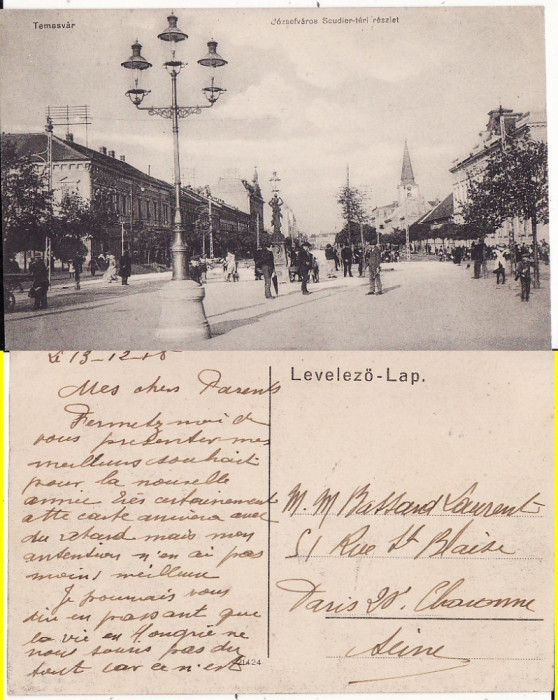 Temesvár
Józsefváros Scudier-téri részlet
Le 13-12-18
Mes chers Parents
Permetez-moi de
vous présenter mes
meilleurs souhait
pour la nouvelle
année très certainement
cette carte arrivera avec
du retard mais mon
intention n'en ai pas
moins meilleure
Je pourrais vous
dire en passant que
la vie en Hongrie ne
nous souris pas du
tout car ce n'est
Levelező-Lap.
M. M Bassard Laurent
51 Rue St Blaise
Paris 20e Charonne
Seine
1424